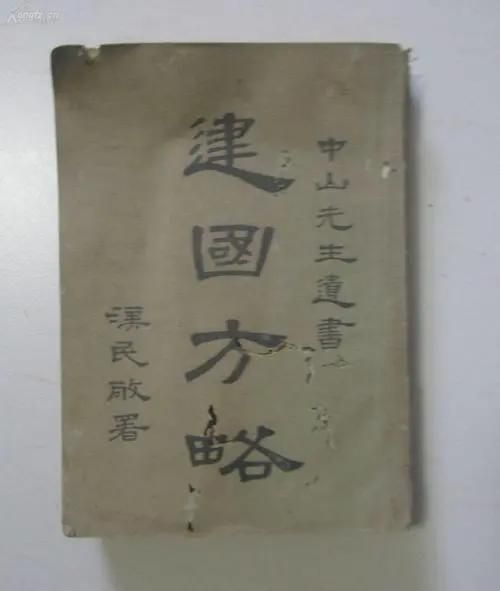 中山先生遺書
建國方略
漢民敬署
Kongfz.cn